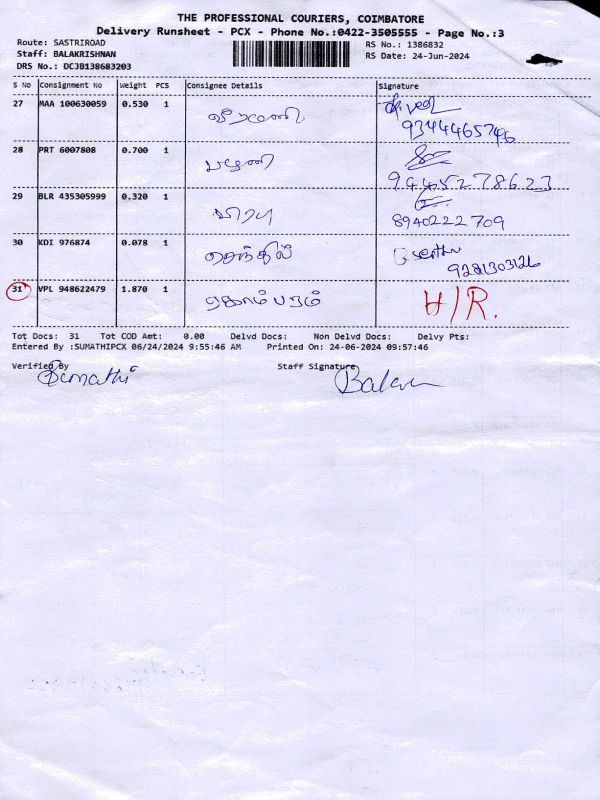 THE PROFESSIONAL COURIERS, COIMBATORE
Delivery Runsheet - PCX - Phone No.:0422-3505555 - Page No.:3
Route: SASTRIROAD
Staff: BALAKRISHNAN
DRS No.: DCJB138683203
RS No.: 1386832
RS Date: 24-Jun-2024
S No Consignment No Weight PCS Consignee Details Signature
27 MAA 100630059 0.530 1 வீரமணி
9344465746
28 PRT 6007808 0.700 1 பழனி
9445278623
29 BLR 435305999 0.320 1 விரபு
8940222709
30 KDI 976874 0.078 1 செந்தில்
9281303126
31 VPL 948622479 1.870 1 ஏகாம்பரம் H/R.
Tot Docs: 31 Tot COD Amt: 0.00 Delvd Docs: Non Delvd Docs: Delvy Pts:
Entered By :SUMATHIPCX 06/24/2024 9:55:46 AM Printed On: 24-06-2024 09:57:46
Verified By Staff Signature
Sumathi